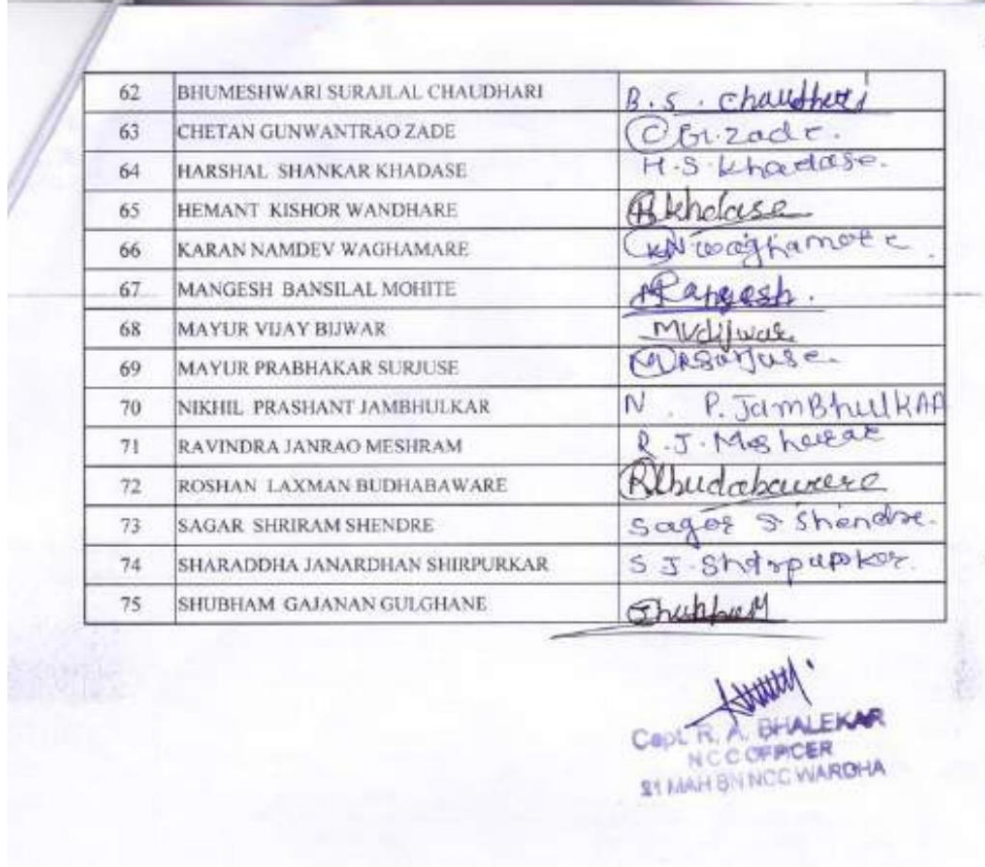 62 BHUMESHWARI SURAJLAL CHAUDHARI B.S. chaudhari
63 CHETAN GUNWANTRAO ZADE C G. zade.
64 HARSHAL SHANKAR KHADASE H.S. khadase.
65 HEMANT KISHOR WANDHARE
66 KARAN NAMDEV WAGHAMARE KN waghamare
67 MANGESH BANSILAL MOHITE Mangesh.
68 MAYUR VIJAY BIJWAR
69 MAYUR PRABHAKAR SURJUSE
70 NIKHIL PRASHANT JAMBHULKAR N. P. JamBhulKAR
71 RAVINDRA JANRAO MESHRAM R.J. Meshram
72 ROSHAN LAXMAN BUDHABAWARE
73 SAGAR SHRIRAM SHENDRE Sagar S Shendre.
74 SHARADDHA JANARDHAN SHIRPURKAR S J. Shirpurkar.
75 SHUBHAM GAJANAN GULGHANE
Capt. R. A. BHALEKAR
NCC OFFICER
21 MAH BN NCC WARDHA